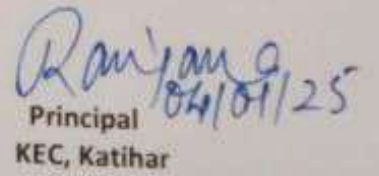 Ranjana
04/01/25
Principal
KEC, Katihar